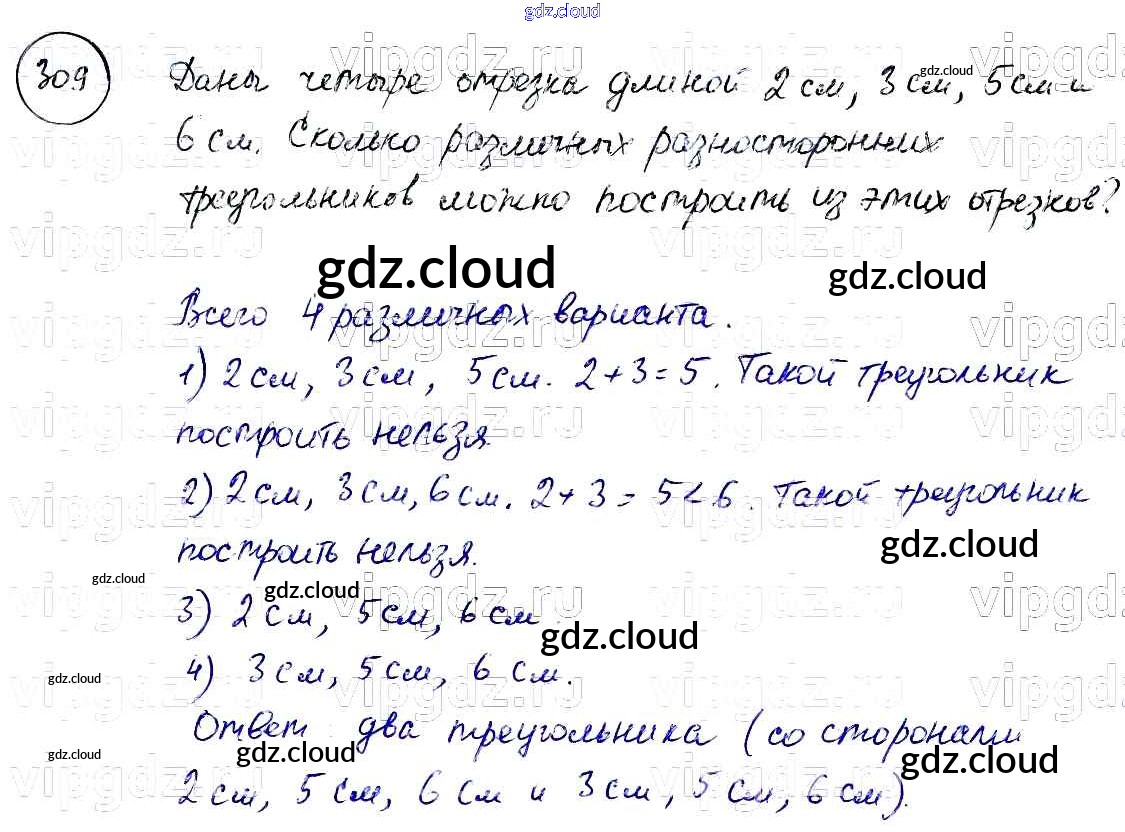 gdz.cloud
309 Даны четыре отрезка длиной 2 см, 3 см, 5 см и
6 см. Сколько различных разносторонних
треугольников можно построить из этих отрезков?
gdz.cloud
gdz.cloud
Всего 4 различных варианта.
1) 2 см, 3 см, 5 см. 2 + 3 = 5. Такой треугольник
построить нельзя
2) 2 см, 3 см, 6 см. 2 + 3 = 5 < 6. Такой треугольник
построить нельзя.
gdz.cloud
gdz.cloud
gdz.cloud
3) 2 см, 5 см, 6 см
gdz.cloud
4) 3 см, 5 см, 6 см.
gdz.cloud
Ответ два треугольника (со сторонами
gdz.cloud
gdz.cloud
gdz.cloud
2 см, 5 см, 6 см и 3 см, 5 см, 6 см).